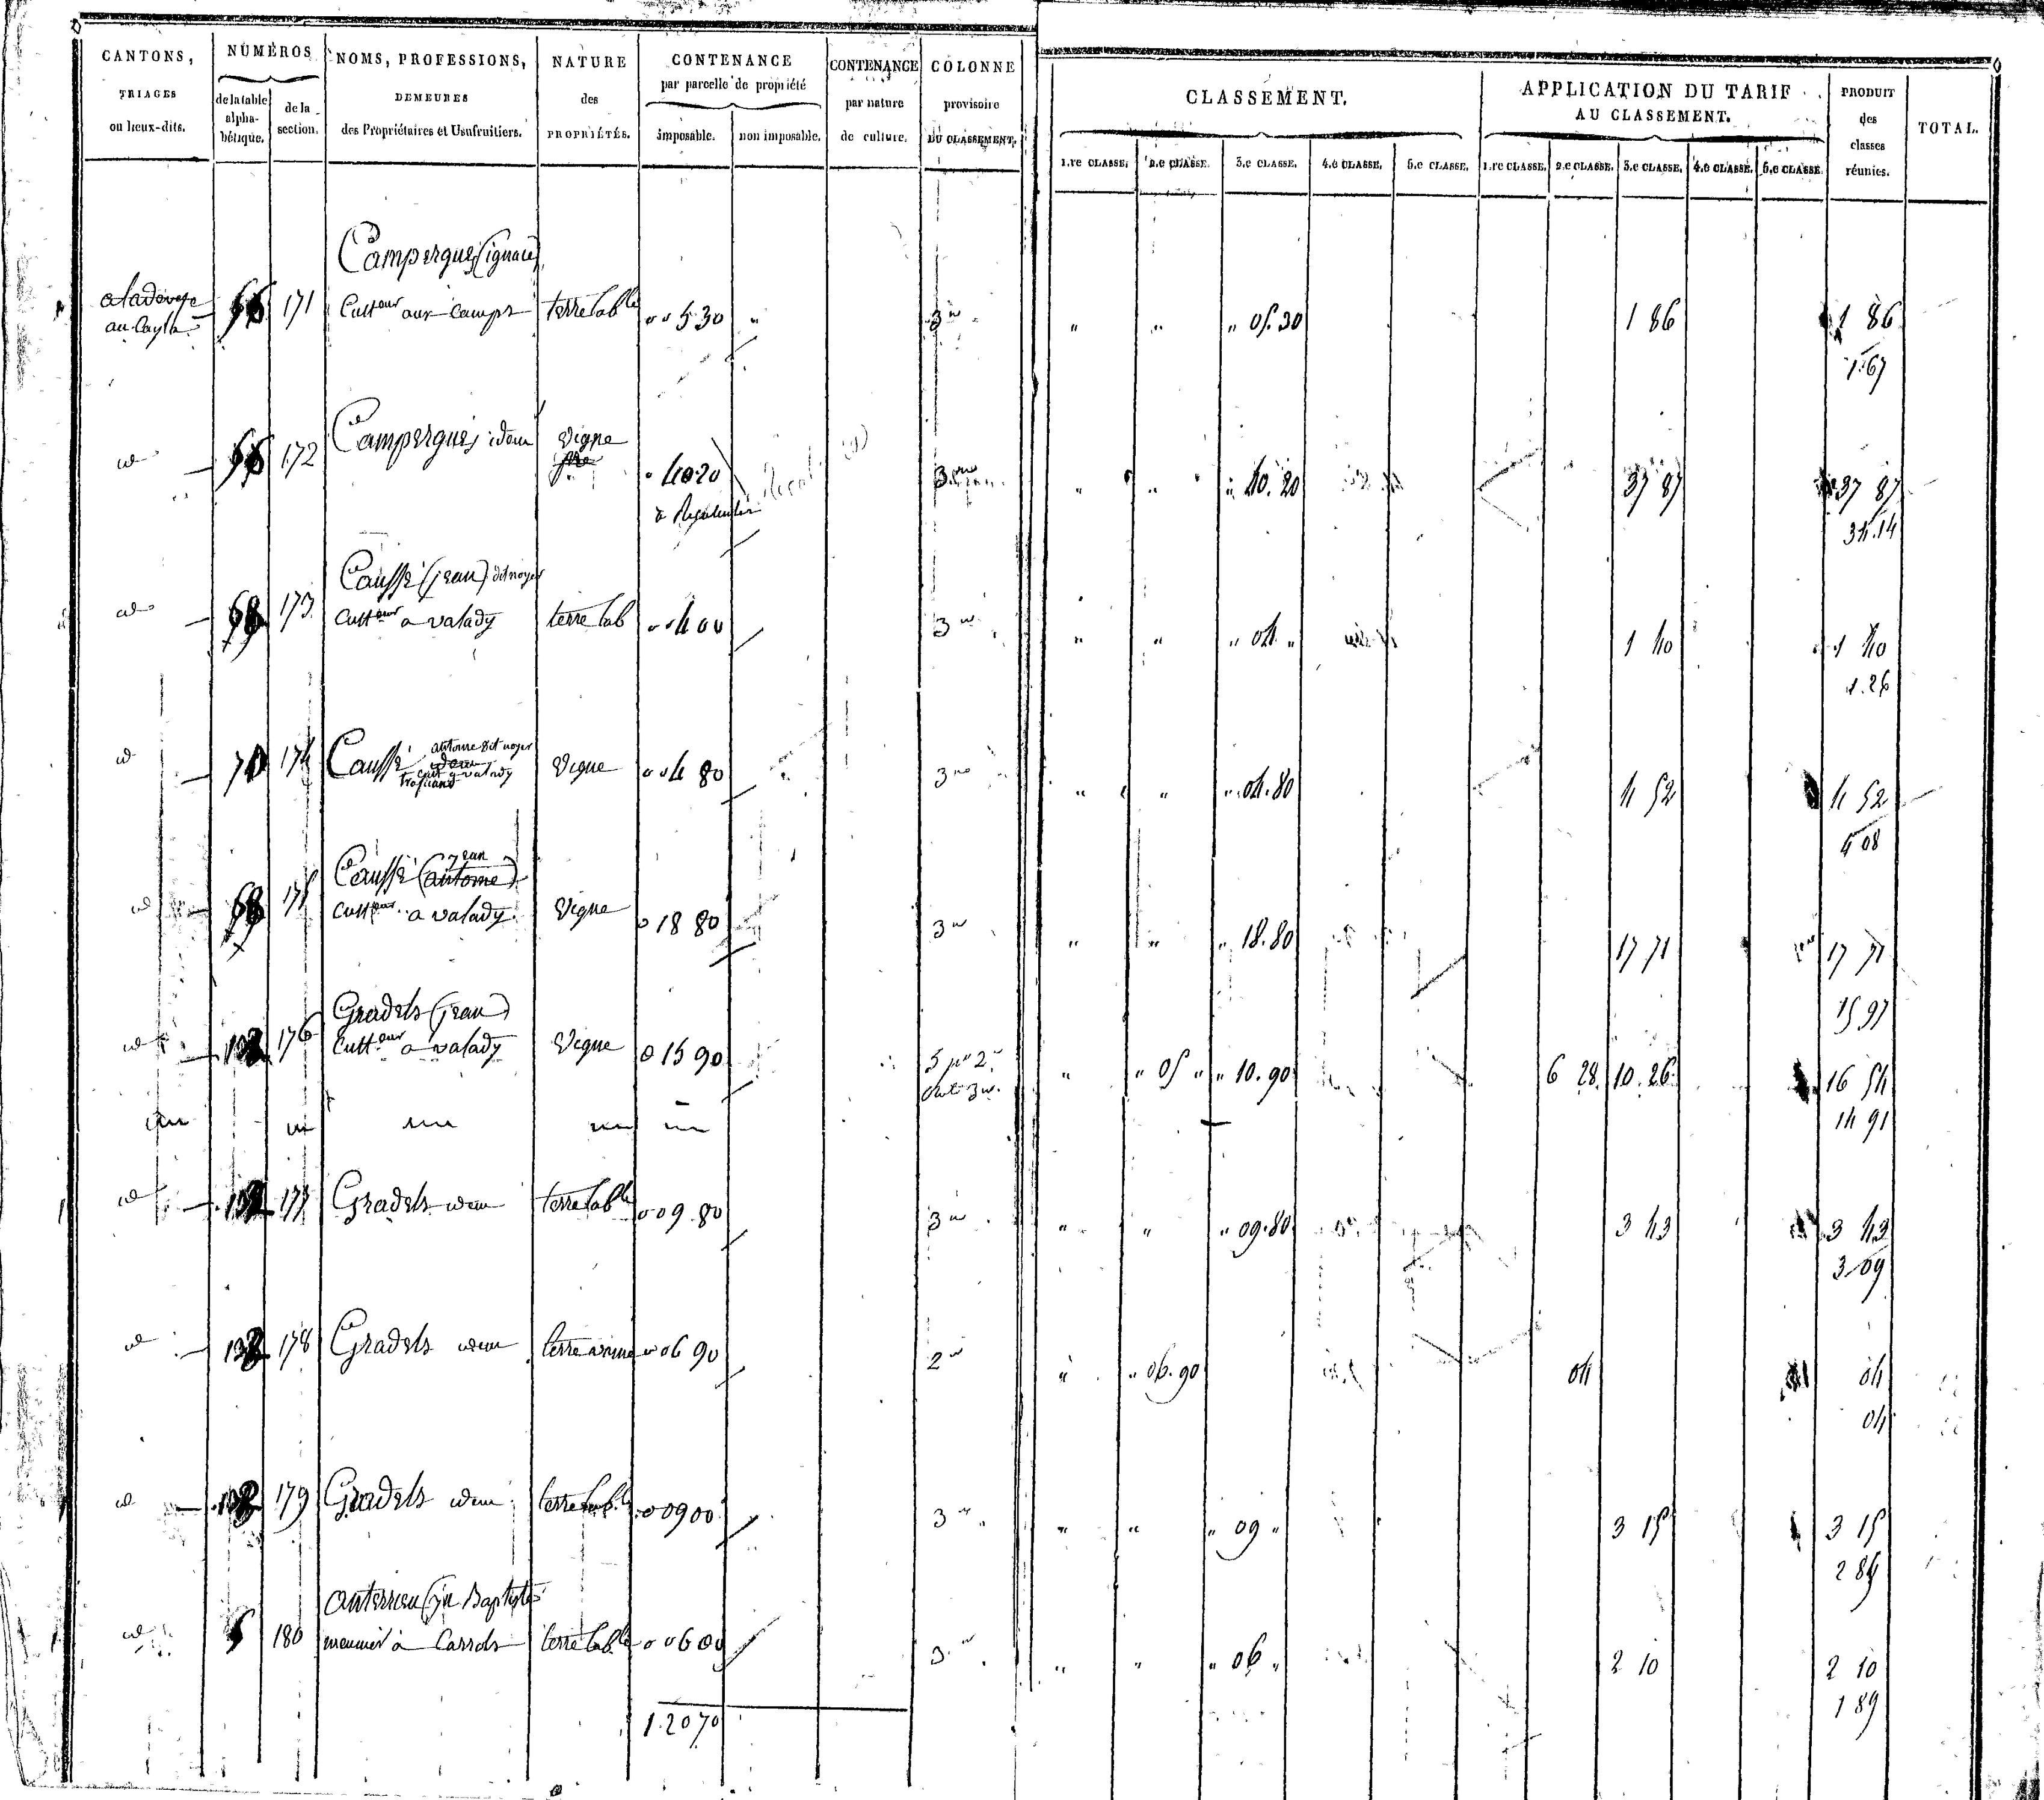 CANTONS, TRIAGES ou lieux-dits.
NUMÉROS de la table alphabétique. de la section.
NOMS, PROFESSIONS, DEMEURES des Propriétaires et Usufruitiers.
NATURE des PROPRIÉTÉS.
CONTENANCE par parcelle de propriété imposable. non imposable.
CONTENANCE par nature de culture.
COLONNE provisoire DU CLASSEMENT.
CLASSEMENT.
1.re CLASSE. 2.e CLASSE. 3.e CLASSE. 4.e CLASSE. 5.e CLASSE.
APPLICATION DU TARIF AU CLASSEMENT.
1.re CLASSE. 2.e CLASSE. 3.e CLASSE. 4.e CLASSE. 5.e CLASSE.
PRODUIT des classes réunies.
TOTAL.
Campergues (ignace)
au Cayla 171 Culteur aux Camps terre lable 0 0 5 30 " 3e " " " 05.30 1 86 1 86
1.67
id 172 Campergues idem Vigne 0 40 20 3me " " " 40.20 37 87 37 87
34.14
Caussé (jean) dit noyer
id 173 Culteur a valady terre lab 0 0 4 00 3e " " " 04 " 1 40 1 40
1.26
id 174 Caussé antoine dit noyer
idem
cult a valady
Vigne 0 0 4 80 3e " " " 04.80 4 52 4 52
4 08
Caussé jean (antoine)
id 175 Culteur a valady Vigne 0 18 80 3e " " " 18.80 17 71 17 71
15 97
Gradels (jean)
id 176 Culteur a valady Vigne 0 15 90 5 pr 2e " " 05 " " 10.90 6 28 10.26 16 54
14 91
id 177 Gradels idem terre lable 0 09 80 3e " " " 09.80 3 43 3 43
3 09
id 178 Gradels idem 0 06 90 2e " " 06.90 04 04
04
id 179 Gradels idem terre lable 0 09 00 3e " " " 09 " 3 15 3 15
2 84
anterrieu (jn Baptiste)
id 5 180 meunier à Cassols terre lable 0 0 6 00 3e " " " 06 " 2 10 2 10
1 89
1.20 70